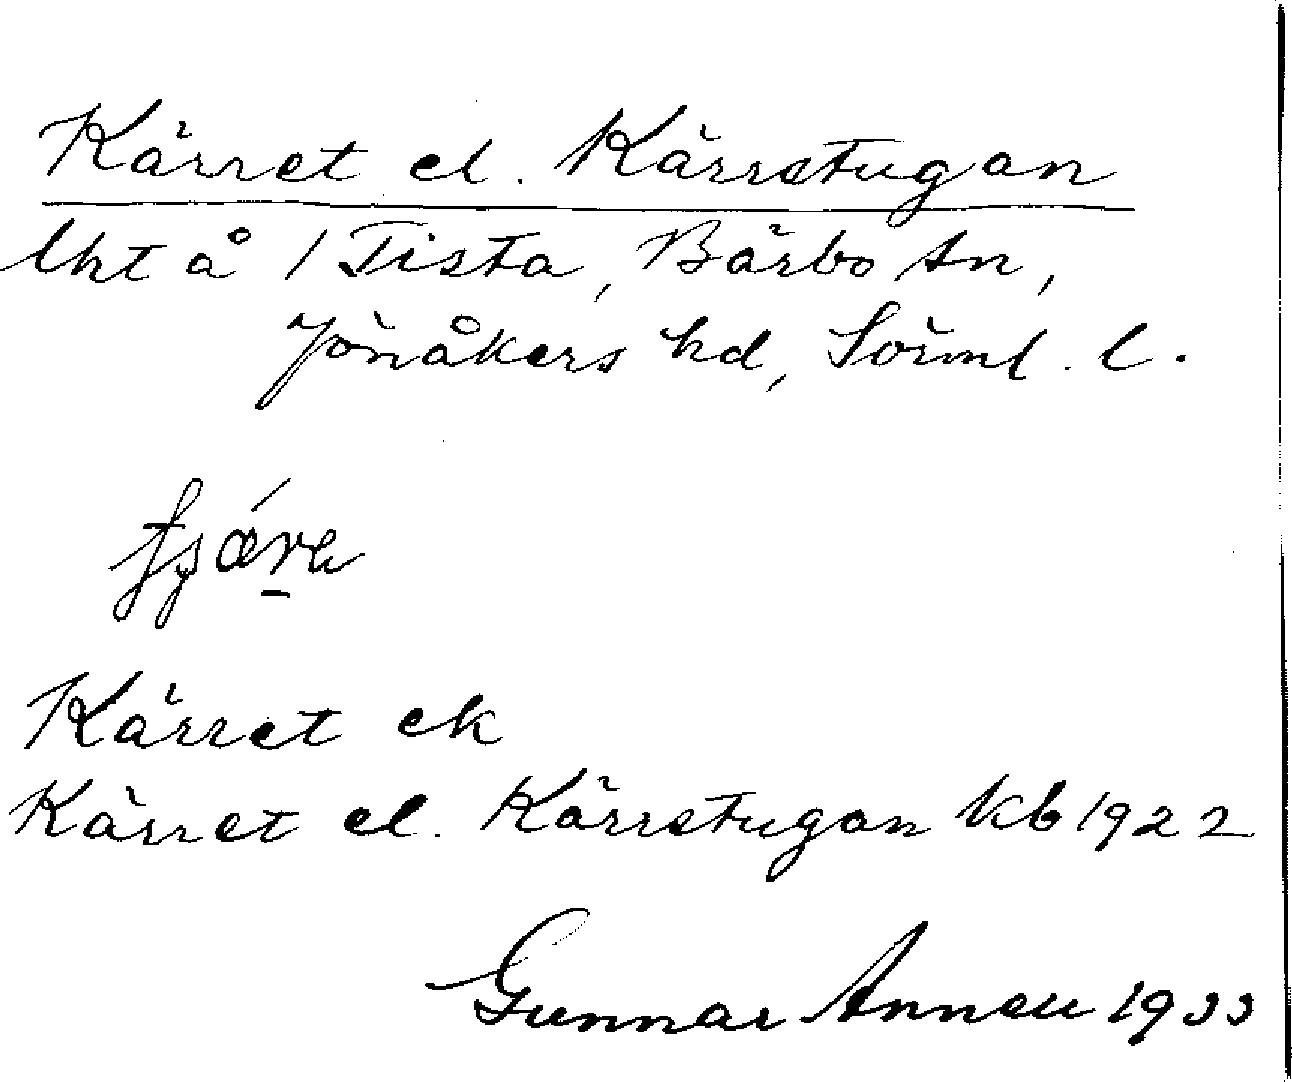 Kärret el. Kärrstugan
lht å 1 Tista, Bärbo sn,
Jönåkers hd, Sörml. l.
Kärret ek
Kärret el. Kärrstugan kb 1922
Gunnar 1933